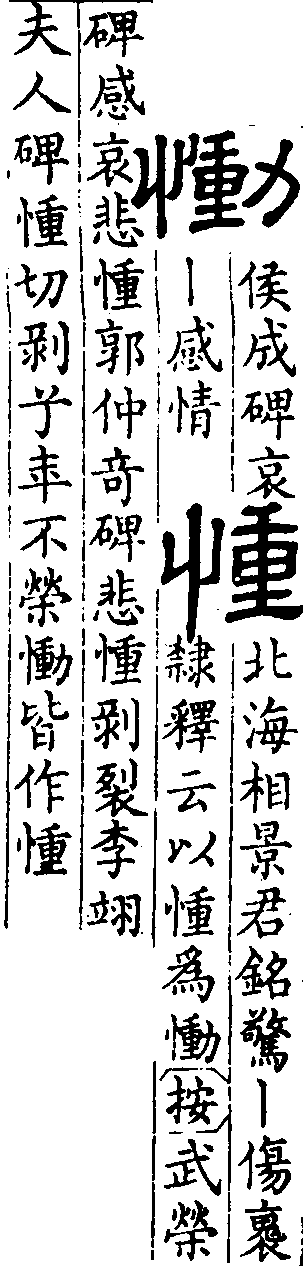 慟
侯成碑哀
丨感情
𢝆
北海相景君銘驚丨傷褱
隸釋云以𢝆爲慟按武榮
碑感哀悲𢝆郭仲奇碑悲𢝆剥裂李翊
夫人碑𢝆切剥兮年不榮慟皆作𢝆